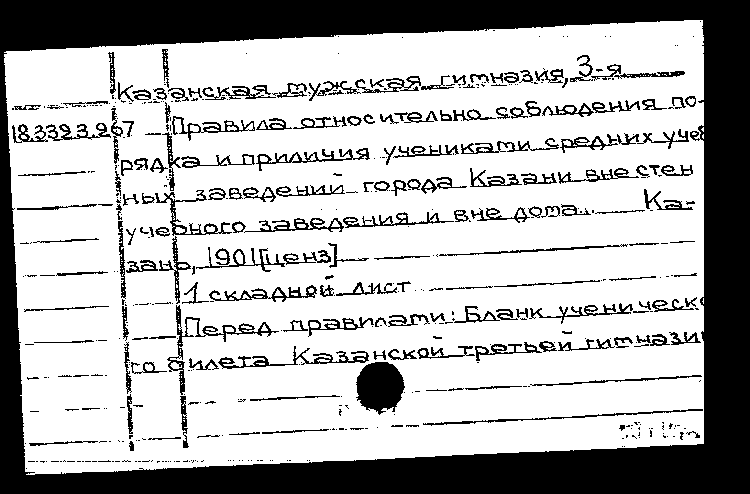 Казанская мужсская гимназия, 3-я
18.339.3.267 Правила относительно соблюдения по-
рядка и приличия учениками средних учеб
ных заведений города Казани вне стен
учебного заведения и вне дома... Ка-
зань, 1901[ценз]
1 складной лист
Перед правилами: Бланк ученическо
го билета Казанской третьей гимназии